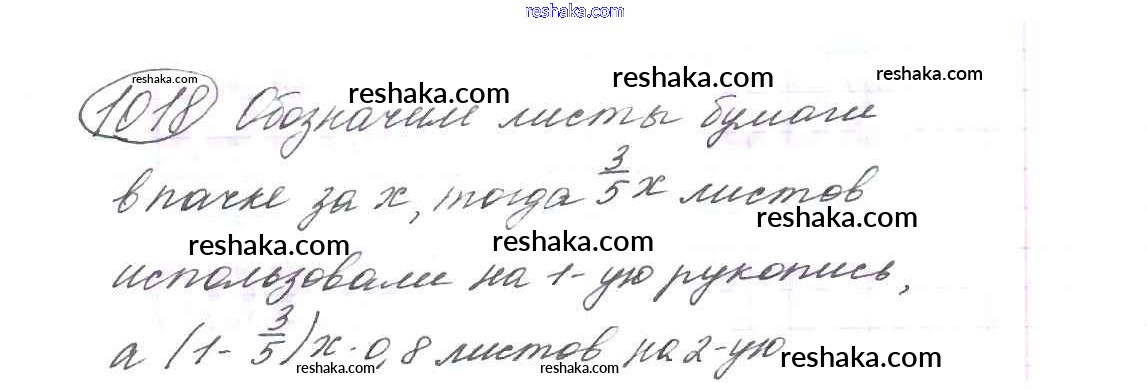 reshaka.com
reshaka.com reshaka.com reshaka.com reshaka.com
1018 Обозначим листы бумаги
в пачке за x, тогда 3/5 x листов
reshaka.com reshaka.com reshaka.com
использовали на 1-ую рукопись,
а (1 - 3/5)x · 0,8 листов на 2-ую
reshaka.com reshaka.com reshaka.com